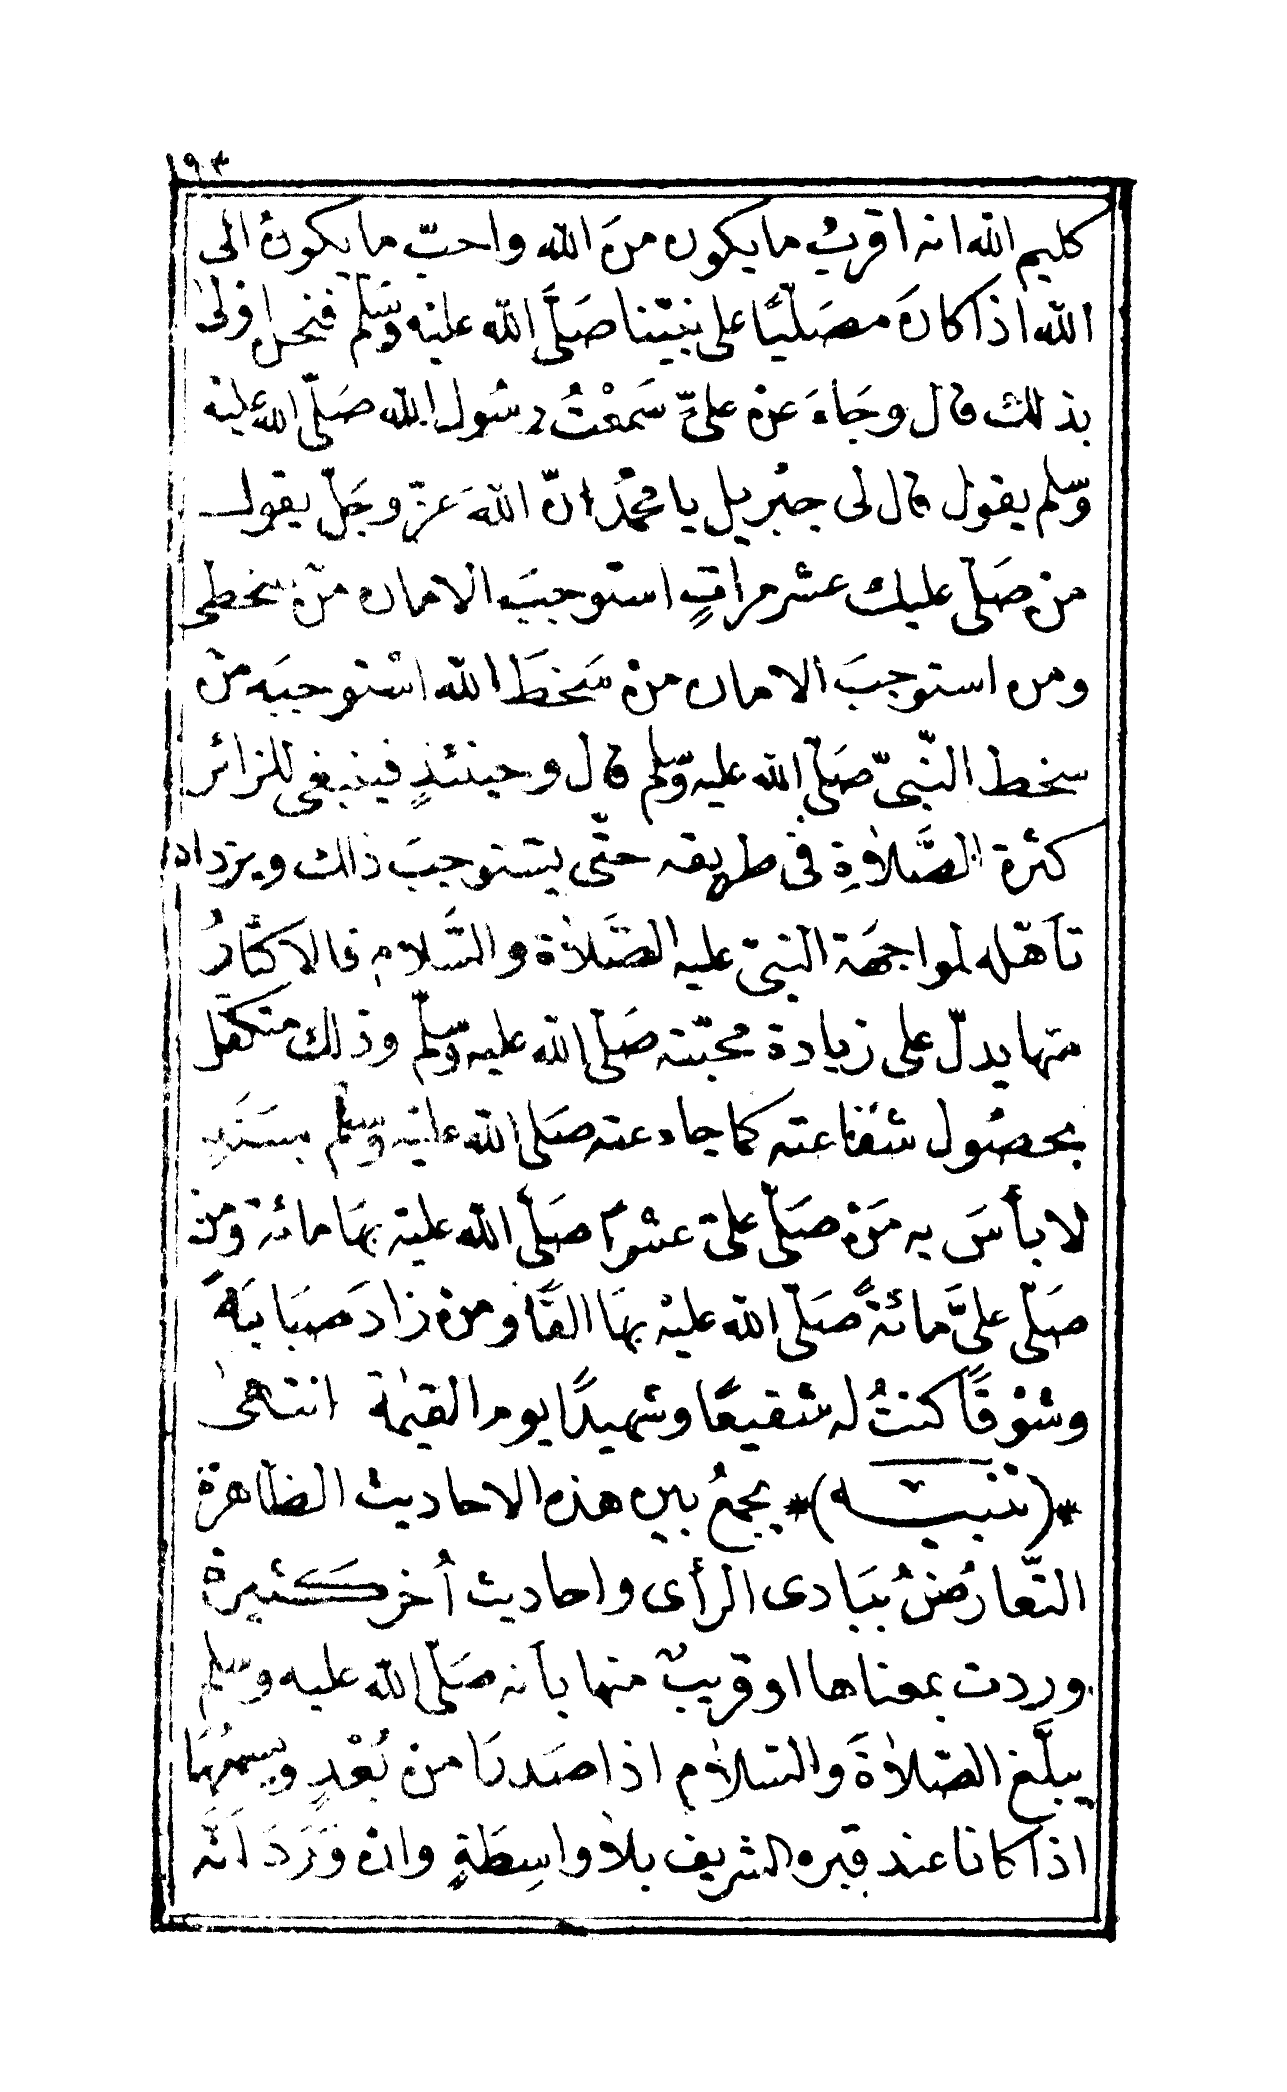 ١٩٣
كليم الله انه اقربُ ما يكون منَ الله واحبّ ما يكونُ الى
الله اذا كانَ مصَلّيًا على نبيّنا صَلَّى الله عليْه وسَلّم فنحن اولىٰ
بذلك قال وجَاءَ عنْ علىٍّ سَمعْتُ رسُول الله صَلّى الله عليْه
وسّلم يقول قال لى جبْريل يا محمّدُ انّ اللّهَ عزّ وجَلّ يقول
منْ صَلّى عليك عشر مراتٍ استوجبَ الامان منْ سخطى
ومن استوجبَ الامان منْ سَخطَ الله اسْتوجبَه منْ
سخط النّبىّ صَلّى الله عليه وسّلم قال وحينئذٍ فينبغى للزائر
كثرة الصَّلاٰةِ فى طريقه حتّى يستوجبَ ذلك ويزداد
تأهّله لمواجَهَة النبىّ عليه الصَّلاٰة والسَّلام فالاكثارُ
منها يدلّ على زيادة محبّته صَلّى الله عليه وسّلم وذلك متكفّل
بحصُول شفَاعته كما جاء عنه صَلى الله عليْه وسّلم بسَنَدٍ
لا بأسَ به مَنْ صَلّى علىّ عشْرًا صَلّى الله عليْه بهَا مائة ومنْ
صَلّى علىَّ مائةً صَلّى الله عليْه بهَا الفًا ومنْ زادَ صَبَابَةً
وشوْقًا كنتُ له شفيعًا وشهيدًا يوم القيٰمة انتهىٰ
*(تنبيـــه)* يجمَعُ بين هذه الاحاديث الظاهرة
التّعارُضُ ببَادى الرأى واحاديث اُخر كثيرة
وردت بمعناها او قريبٌ منها بأنه صَلّى الله عليه وسلم
يبلَّغ الصّلاٰةَ والسّلاٰم اذا صَدرَا منْ بُعْدٍ ويسمعُهمَا
اذا كانا عند قبره الشريف بلاٰ واسِطَةٍ وانْ وَرَدَ اَنَّه